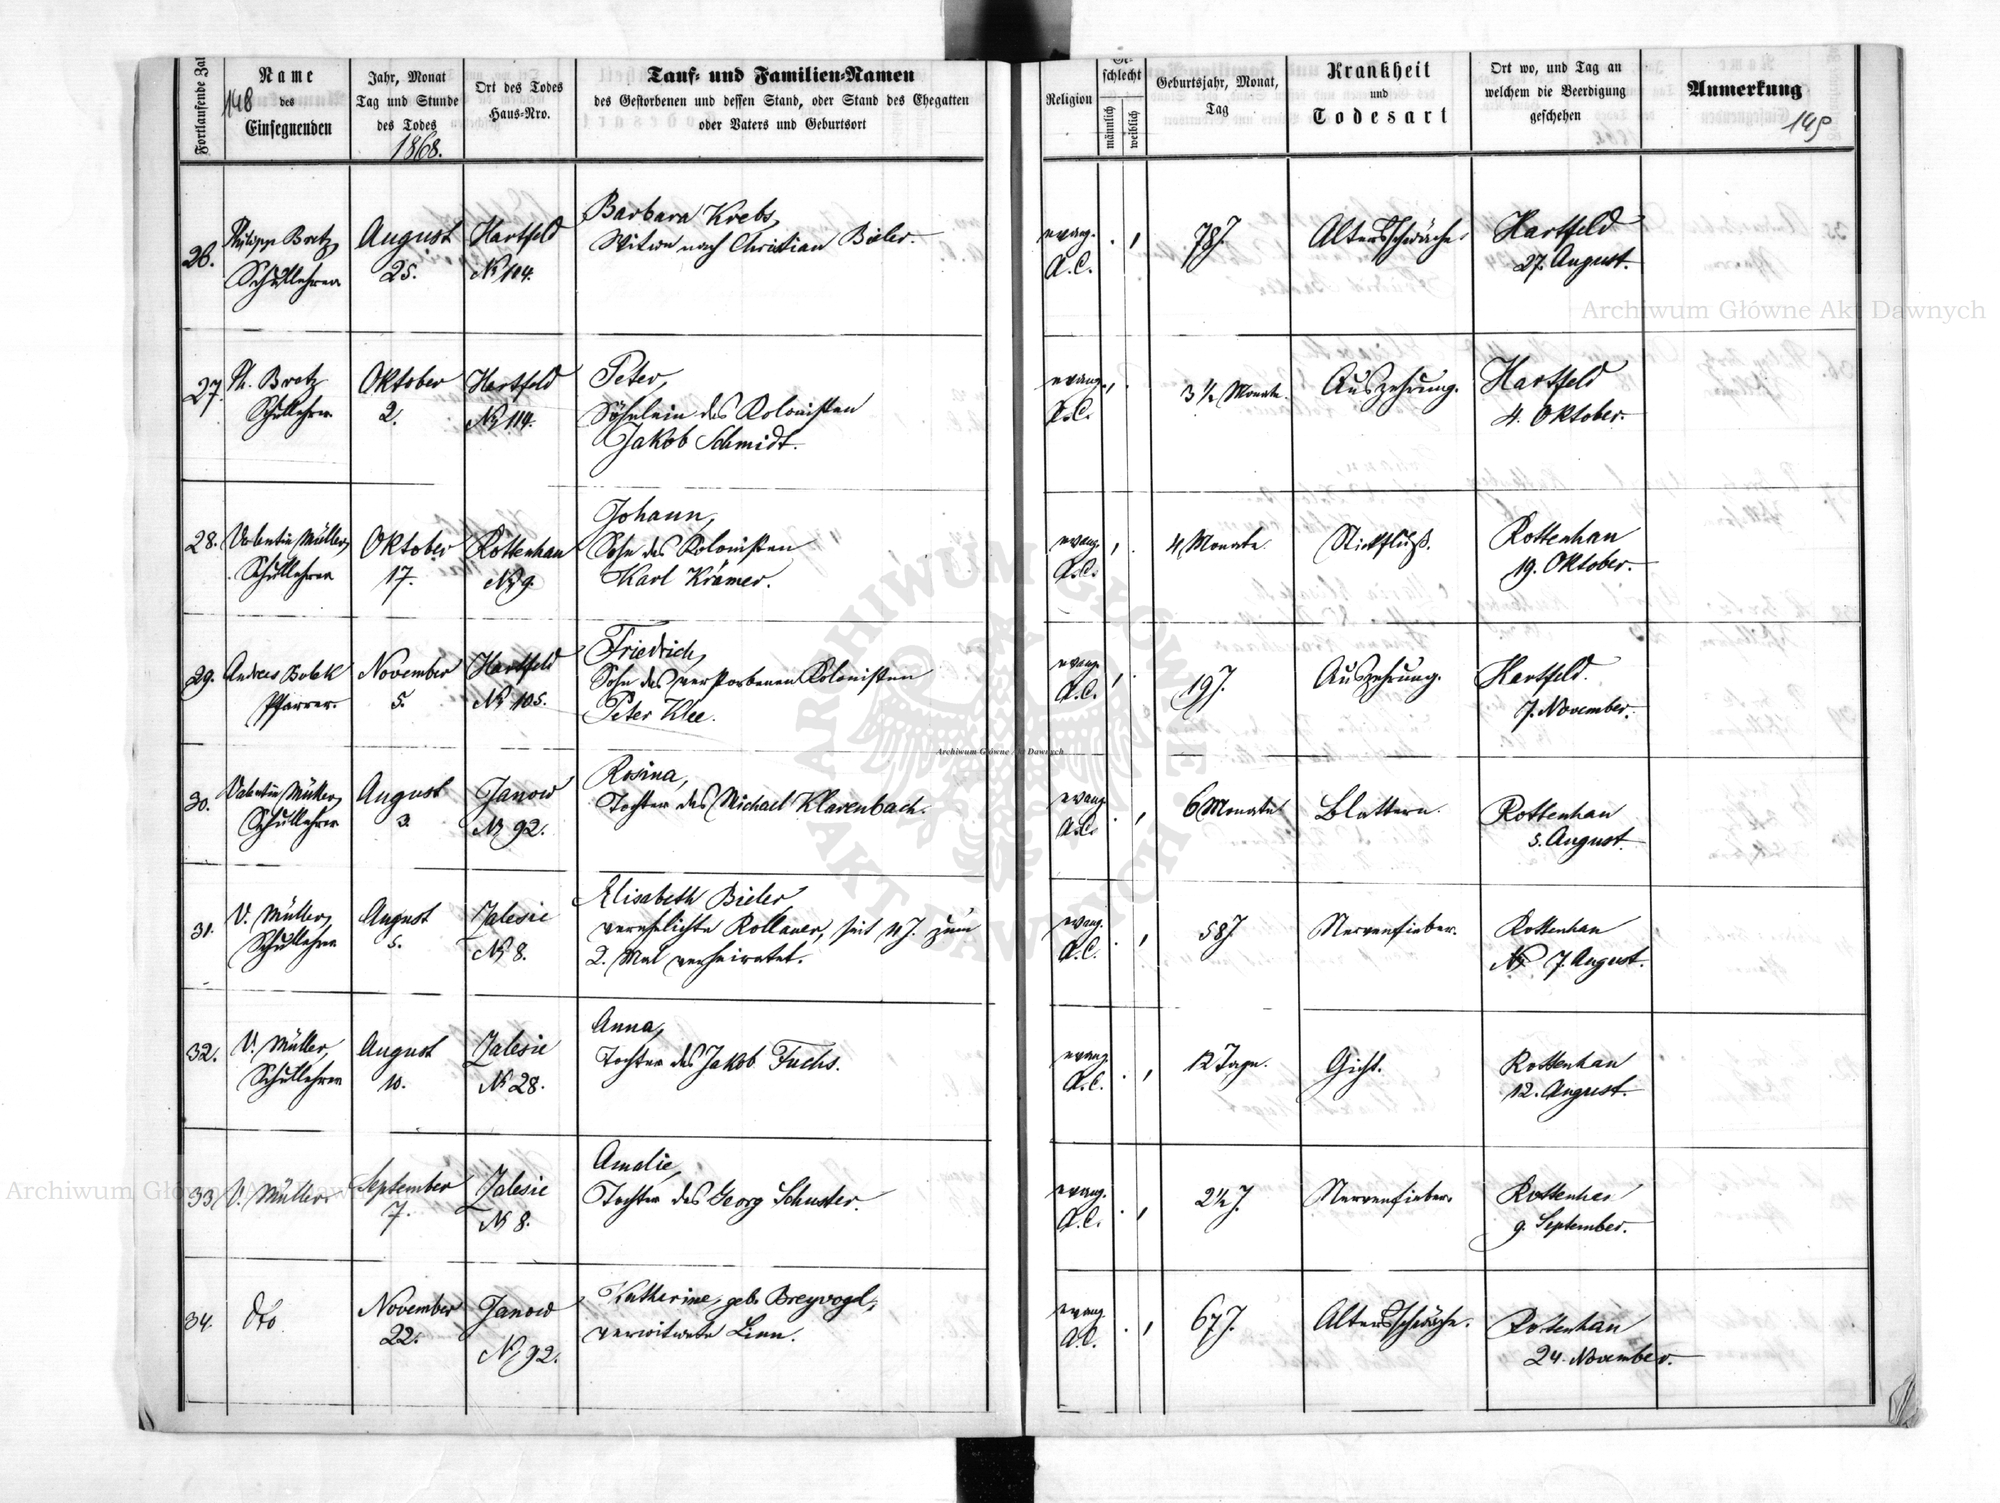 Fortlaufende Zal
148
Name
des
Einsegnenden
Jahr, Monat
Tag und Stunde
des Todes
1868.
Ort des Todes
Haus-Nro.
Tauf- und Familien-Namen
des Gestorbenen und dessen Stand, oder Stand des Ehegatten
oder Vaters und Geburtsort
Religion
Ge-
schlecht
männlich
weiblich
Geburtsjahr, Monat,
Tag
Krankheit
und
Todesart
Ort wo, und Tag an
welchem die Beerdigung
geschehen
Anmerkung
149
26. Philipp Bretz, August Hartfeld Barbara Krebs,
Schullehrer 25. No 114. Witwe nach Christian Bieler.
evang. 78 J. Altersschwäche. Hartfeld
A.C. 27. August.
27. Ph. Bretz Oktober Hartfeld Peter,
Schullehrer 2. No 114. Söhnlein des Kolonisten
Jakob Schmidt.
evang. 3 1/2 Monate. Auszehrung. Hartfeld
A.C. 4. Oktober.
28. Valentin Müller, Oktober Rottenhan Johann,
Schullehrer 17. No 9. Sohn des Kolonisten
Karl Krämer.
evang. 4 Monate. Stickfluß. Rottenhan
A.C. 19. Oktober.
29. Andreas Bolek November Hartfeld Friedrich,
Pfarrer. 5. No 105. Sohn des verstorbenen Kolonisten
Peter Klee.
evang. 19 J. Auszehrung. Hartfeld.
A.C. 7. November.
30. Valentin Müller, August Janow Rosina,
Schullehrer 3. No 92. Tochter des Michael Klarenbach.
evang. 6 Monate Blattern. Rottenhan
A.C. 5. August.
31. V. Müller, August Zalesie Elisabeth Bieler,
Schullehrer 5. No 8. verehelichte Rollauer, seit J. zum
2. Mal verheiratet.
evang. 58 J. Nervenfieber. Rottenhan
A.C. 7. August.
32. V. Müller, August Zalesie Anna,
Schullehrer 10. No 28. Tochter des Jakob Fuchs.
evang. 12 Tage. Gicht. Rottenhan
A.C. 12. August.
33 V. Müller September Zalesie Amalie,
7. No 8. Tochter des Georg Schuster.
evang. 2 1/2 J. Nervenfieber. Rottenhan
A.C. 9. September.
34. dto November Janow Katherine, geb. Breyvogel,
22. No 92. verwitwete Linn.
evang. 67 J. Altersschwäche. Rottenhan
A.C. 24. November.
Archiwum Główne Akt Dawnych
Archiwum Główne Akt Dawnych
Archiwum Główne Akt Dawnych
ARCHIWUM GŁÓWNE AKT DAWNYCH